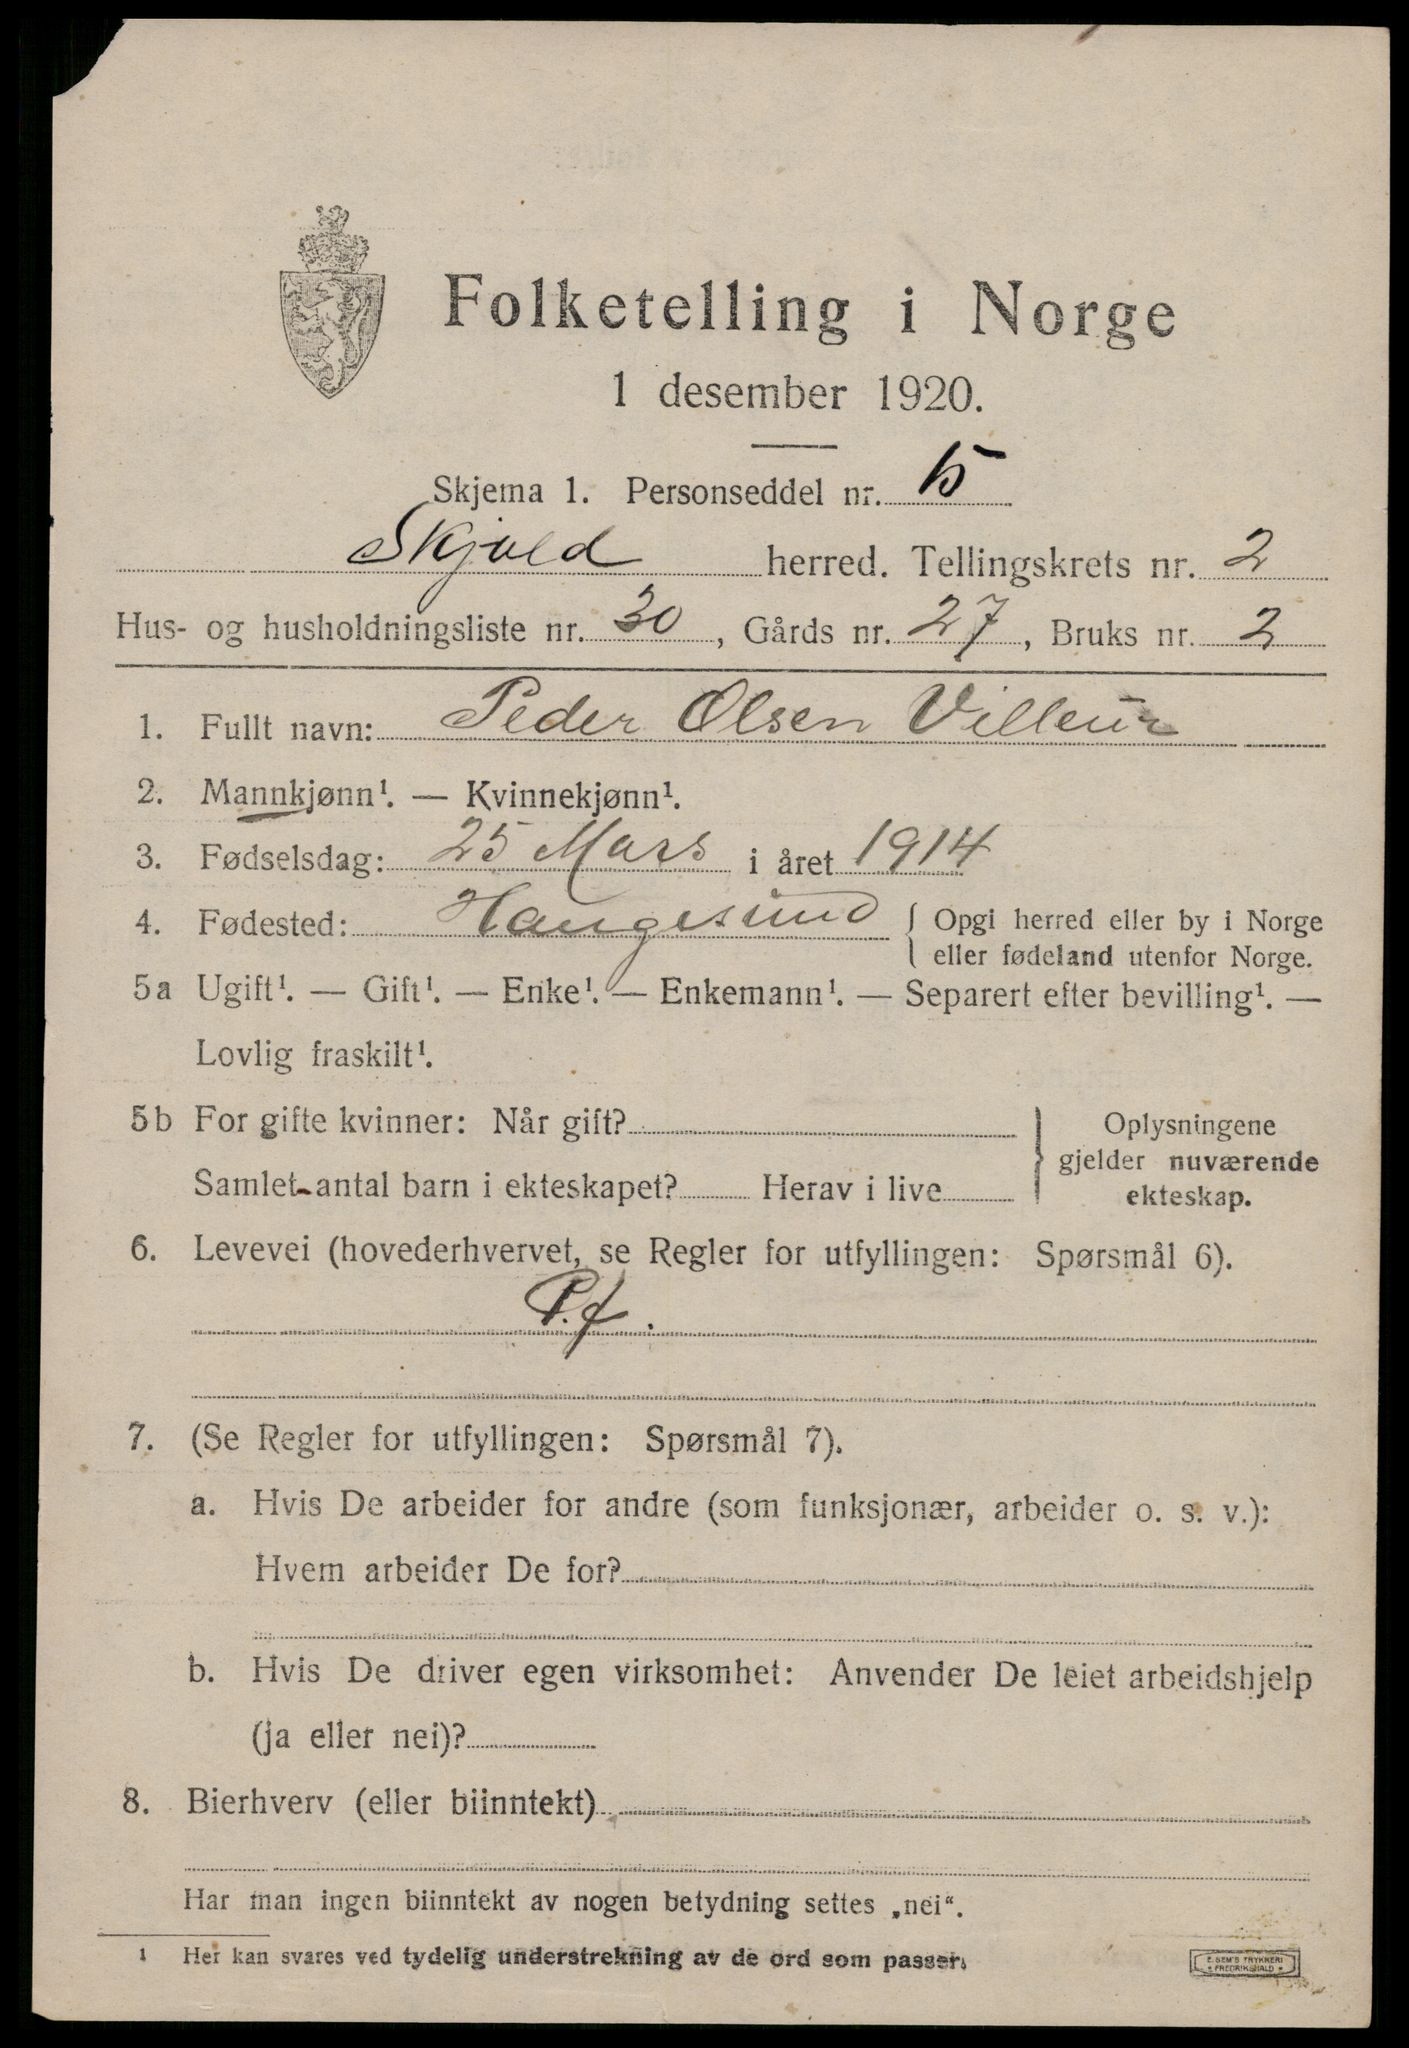 Folketelling i Norge
1 desember 1920.
Skjema 1. Personseddel nr. 15
Skjold herred. Tellingskrets nr. 2
Hus- og husholdningsliste nr. 30, Gårds nr. 27, Bruks nr. 2
1. Fullt navn: Peder Olsen
2. Mannkjønn¹. — Kvinnekjønn¹.
3. Fødselsdag: 25 Mars i året 1914
4. Fødested: Haugesund { Opgi herred eller by i Norge
eller fødeland utenfor Norge.
5a Ugift¹. — Gift¹. — Enke¹. — Enkemann¹. — Separert efter bevilling¹. —
Lovlig fraskilt¹.
5b For gifte kvinner: Når gift?
Samlet antal barn i ekteskapet? Herav i live
} Oplysningene
gjelder nuværende
ekteskap.
6. Levevei (hovederhvervet, se Regler for utfyllingen: Spørsmål 6).
P.f.
7. (Se Regler for utfyllingen: Spørsmål 7).
a. Hvis De arbeider for andre (som funksjonær, arbeider o. s. v.):
Hvem arbeider De for?
b. Hvis De driver egen virksomhet: Anvender De leiet arbeidshjelp
(ja eller nei)?
8. Bierhverv (eller biinntekt)
Har man ingen biinntekt av nogen betydning settes „nei“.
¹ Her kan svares ved tydelig understrekning av de ord som passer.
E. SEM'S TRYKKERI
FREDRIKSHALD